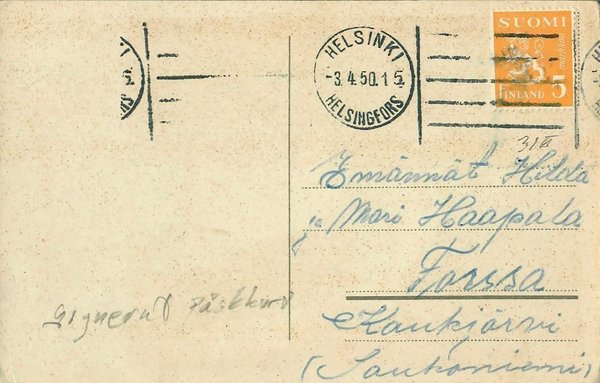 HELSINKI
-3.4.50.15
HELSINGFORS
SUOMI
markkaa
FINLAND 5
Emännät Hilda
ja Mari Haapala
Forssa
Kaukjärvi
(Saukoniemi)
signerat påskkort